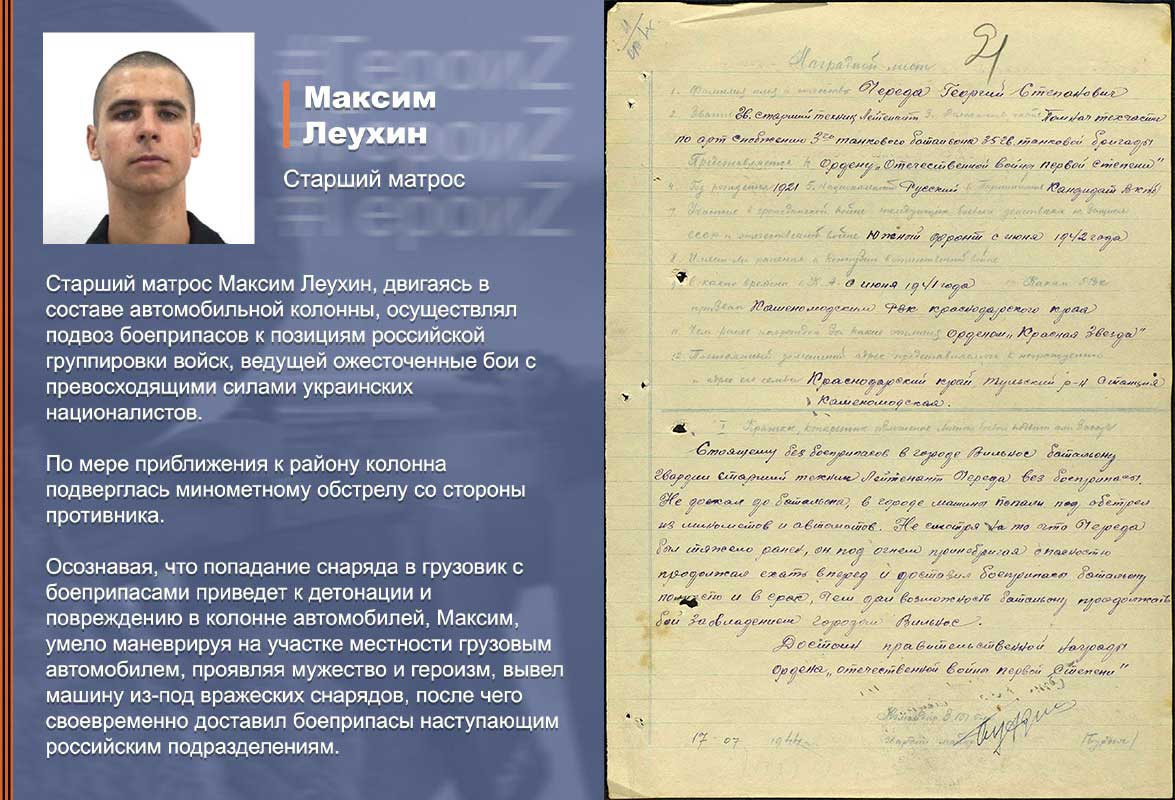 #ГероиZ
#ГероиZ
#ГероиZ
Максим
Леухин
Старший матрос
Старший матрос Максим Леухин, двигаясь в
составе автомобильной колонны, осуществлял
подвоз боеприпасов к позициям российской
группировки войск, ведущей ожесточенные бои с
превосходящими силами украинских
националистов.
По мере приближения к району колонна
подверглась минометному обстрелу со стороны
противника.
Осознавая, что попадание снаряда в грузовик с
боеприпасами приведет к детонации и
повреждению в колонне автомобилей, Максим,
умело маневрируя на участке местности грузовым
автомобилем, проявляя мужество и героизм, вывел
машину из-под вражеских снарядов, после чего
своевременно доставил боеприпасы наступающим
российским подразделениям.
21
Наградной лист
1. Фамилия имя и отчество Череда Георгий Степанович
2. Звание Гв. старший техник лейтенант 3. Помнач техчасти
по арт снабжению 3го танкового батальона 35 гв. танковой бригады
Представляется к Ордену „Отечественной война первой степени"
4. Год рождения 1921 5. Национальность Русский 6. Партийность Кандидат ВКПб
7. Участие в гражданской войне последующих боевых действиях по защите
СССР и отечественной войне Южный фронт с июня 1942 года
8. Имеет ли ранения и контузии в отечественной войне
9. С какого времени в К.А. с июня 1941 года 10. Каким РВК
призван Каменомодским РВК Краснодарского края
11. Чем ранее награжден за какие отличия Орденом „Красная Звезда"
12. Постоянный домашний адрес представляемого к награждению
и адрес его семьи Краснодарский край Тульский р-н Станция
Каменомодская.
I Краткое, конкретное изложение личного боевого подвига или заслуг
Стоящему без боеприпасов в городе Вильнос батальону
гвардии старший техник лейтенант Череда вез боеприпасы.
Не доехал до батальона, в городе машины попали под обстрел
из минометов и автоматов. Не смотря на то что Череда
был тяжело ранен, он под огнем принебригая опасностью
продолжал ехать вперед и доставил боеприпасы батальону
полностю и в срок, чем дал возможность батальону продолжать
бой за овладением городом Вильнос.
Достоин правительственной награды
Ордена „отечественной война первой степени"
17 07 1944